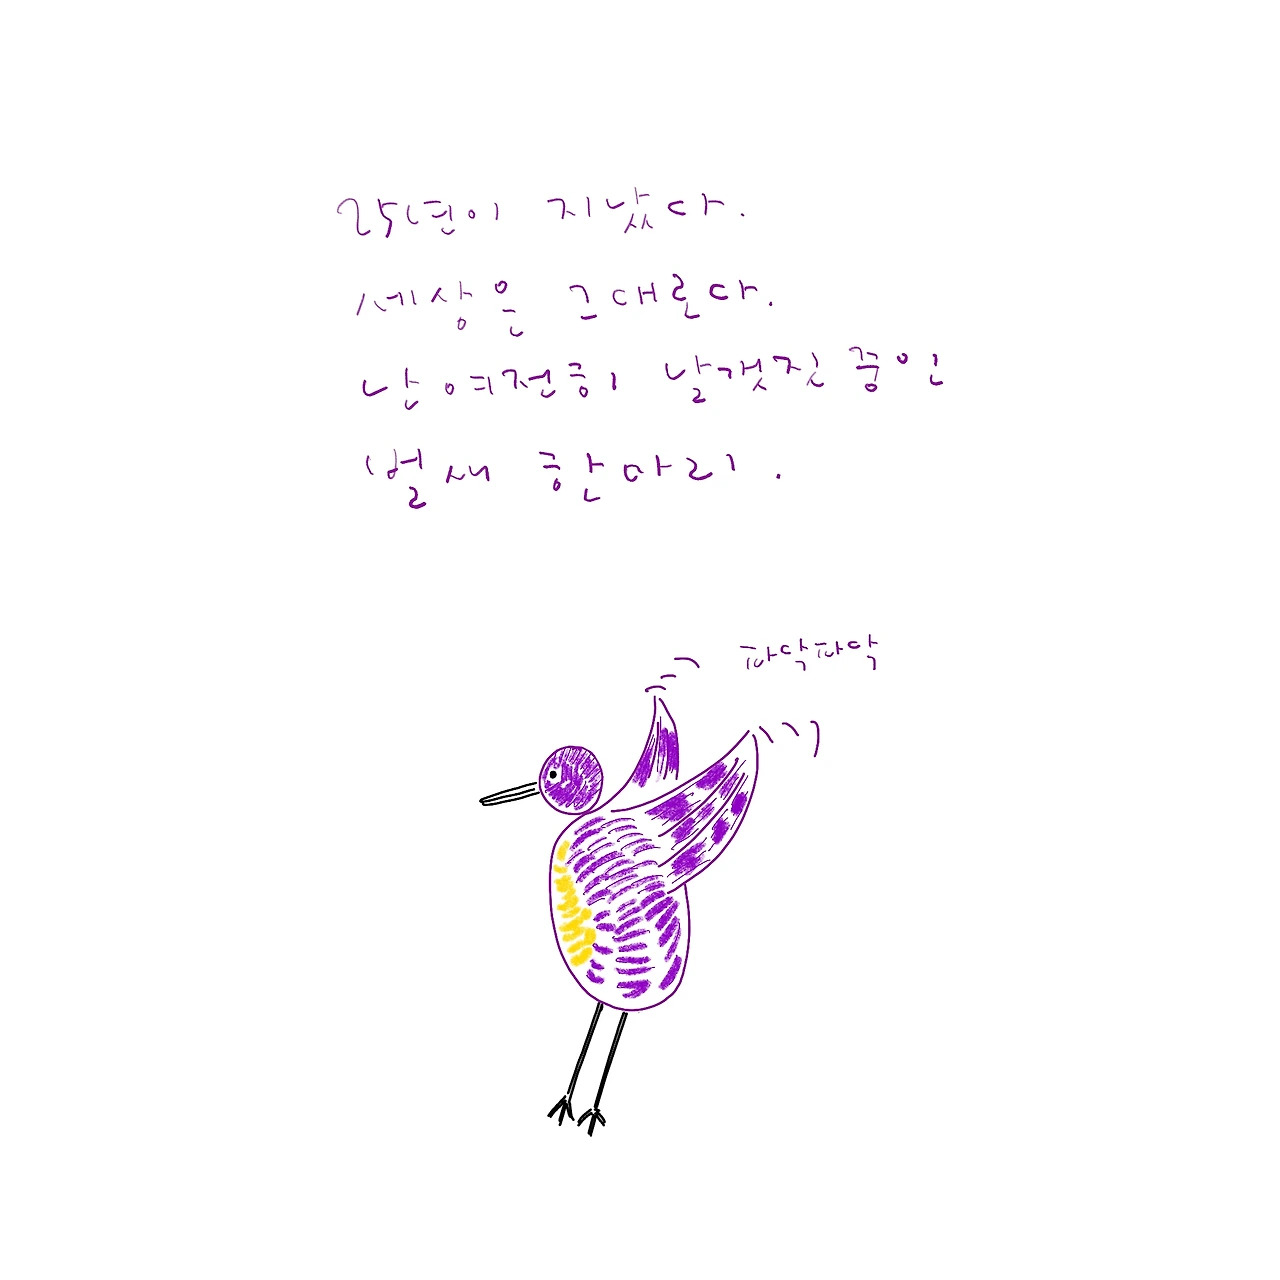 25년이 지났다.
세상은 그대로다.
난 여전히 날갯짓 중인
벌새 한마리.
파닥파닥